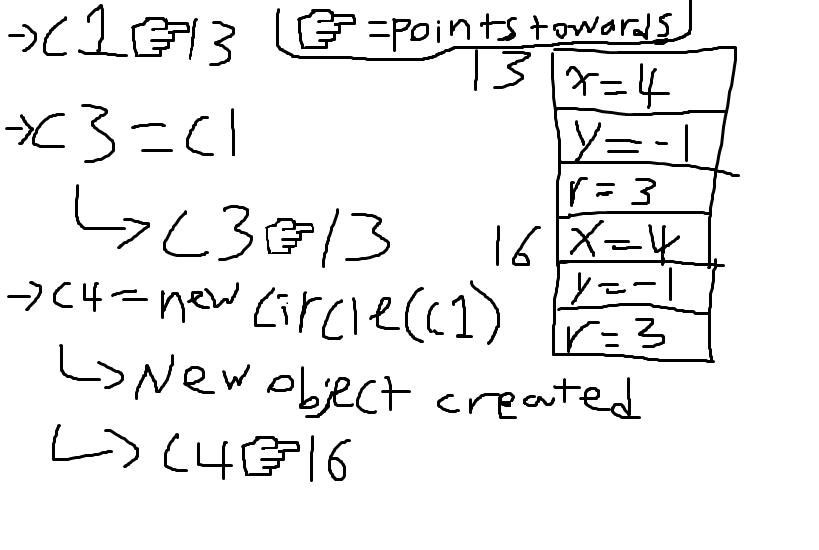 →C1☞13
☞=points towards
→C3=C1
↳C3☞13
→C4=new circle(c1)
↳New object created
↳C4☞16
13 x=4
y=-1
r=3
16 x=4
y=-1
r=3